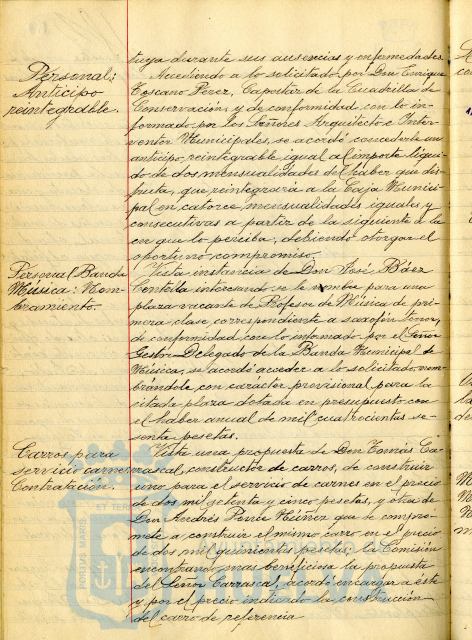 tuya durante sus ausencias y enfermedades.
Personal:
Anticipo
reintegrable.
Accediendo a lo solicitado por Don Enrique
Toscano Perez, Capataz de la Cuadrilla de
Conservación, y de conformidad con lo in-
formado por los Señores Arquitecto e Inter-
ventor Municipales, se acordó concederle un
anticipo reintegrable igual al importe líqui-
do de dos mensualidades del haber que dis-
fruta, que reintegrará a la Caja Munici-
pal en catorce mensualidades iguales y
consecutivas a partir de la siguiente a la
en que lo perciba, debiendo otorgar el
oportuno compromiso.
Personal Banda
Música: Nom-
bramiento.
Vista instancia de Don José Báez
Centella interesando se le nombre para una
plaza vacante de Profesor de Música de pri-
mera clase, correspondiente a saxofón tenor,
de conformidad con lo informado por el Señor
Gestor Delegado de la Banda Municipal de
Música, se acordó acceder a lo solicitado nom-
brándole con carácter provisional para la
citada plaza dotada en presupuesto con
el haber anual de mil cuatrocientas se-
senta pesetas.
Carros para
servicio carnes:
Contratación.
Vista una propuesta de Don Tomás Ca-
rrascal, constructor de carros, de construir
uno para el servicio de carnes en el precio
de dos mil setenta y cinco pesetas, y otra de
Don Andrés Núñez que se compro-
mete a construir el mismo carro en el precio
de dos mil quinientas pesetas, la Comisión
encontrando mas beneficiosa la propuesta
del Señor Carrascal, acordó encargar a éste
y por el precio indicado la construcción
del carro de referencia
ET TERRA
PORTUS MARIS